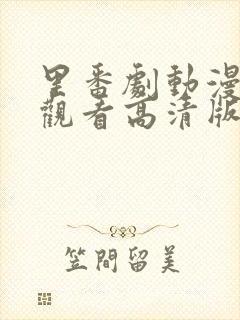 里番劇動漫
觀看高清版
笠間留美